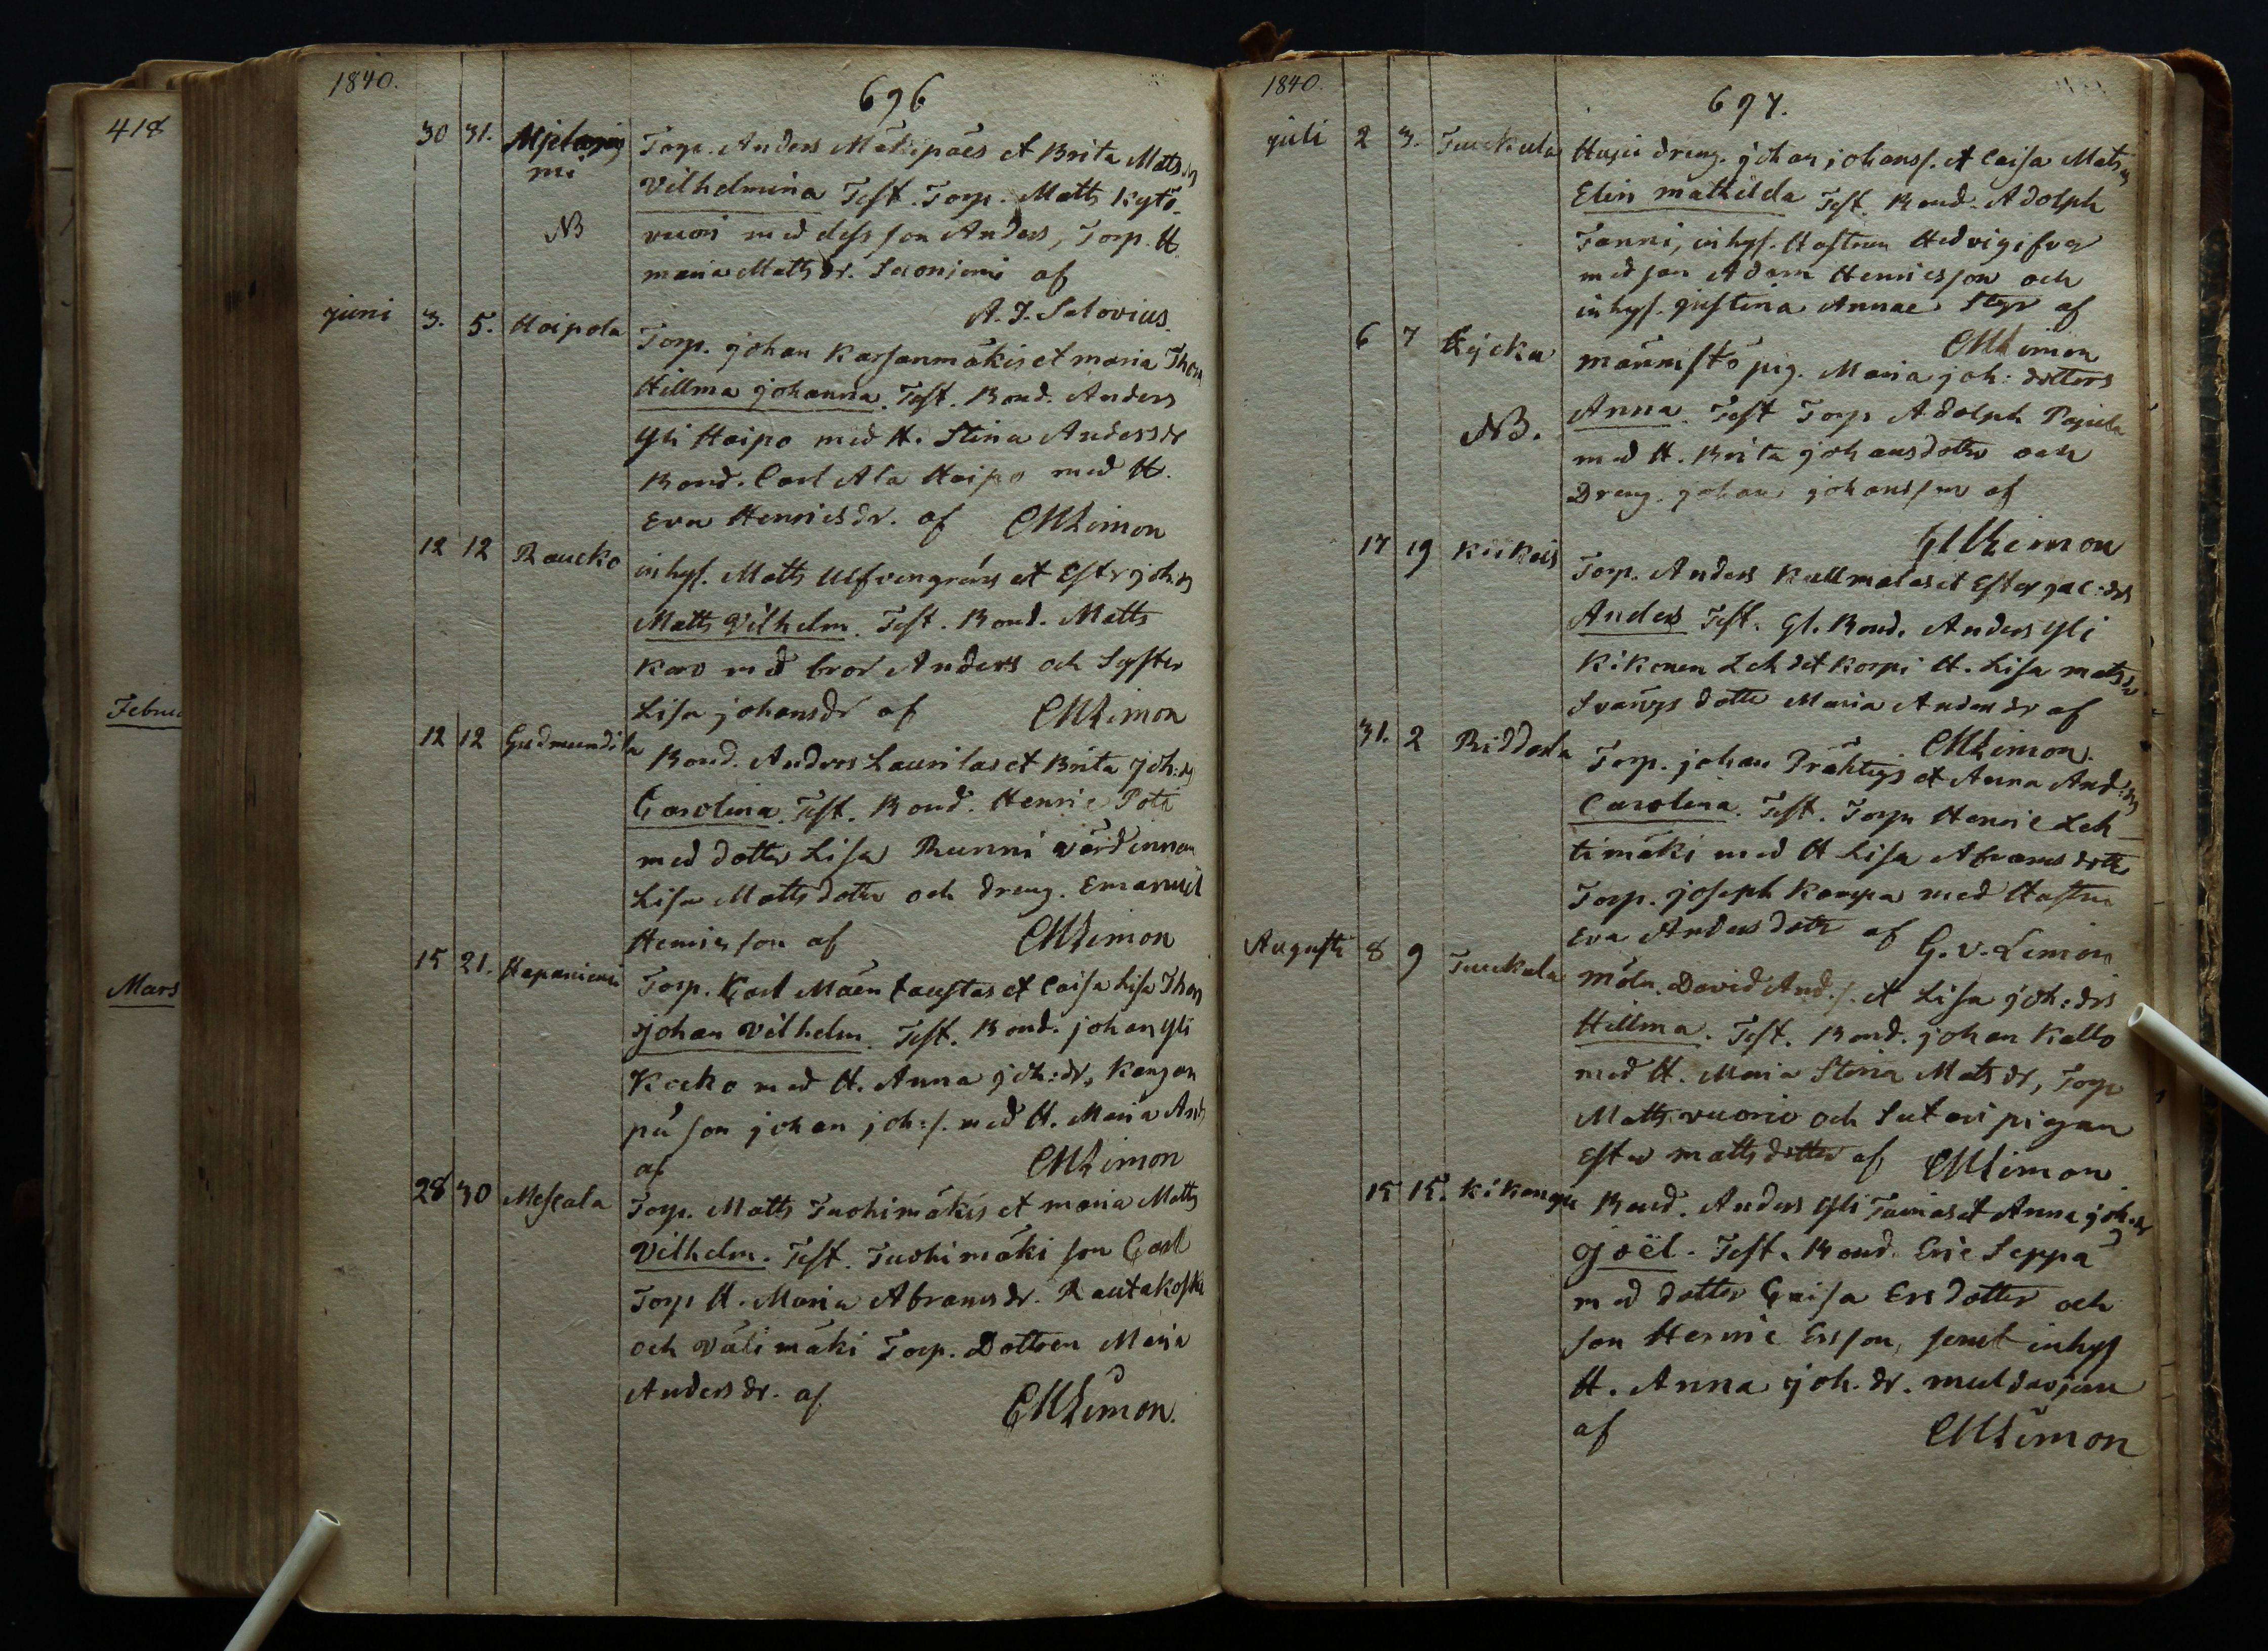 418
Februa
Mars
1840.
696
30 31. Mjeloniemi
Torp. Anders Mäkipääs et Brita Mats drs
Vilhelmina Test. Torp. Matts Kytö-
NB
vuori med dess son Anders, Torp. H.
maria Matts dr. Suoniemi af
A. J. Salovius.
juni 3. 5. Hoipola
Torp. johan Karsanmäkis et maria Thom
Hillma johanna. Test. Bond. Anders
Yli Hoipo med H. Stina Anders dr
Bond. Carl Ala Hoipo med H.
Eva Henricsdr. af CMLimon
12 12 Raucko
inhys. Matts Ulfvengréns et Estr joh: drs
Matts Vilhelm. Test. Bond. Matts
Karo med bror Anders och Syster
Lisa johansdr af CMLimon
12 12 Gudmundila
Bond. Anders Laurilas et Brita joh: drs
Carolina. Test. Bond. Henric Poti
med dotter Lisa Runni värdinnan
Lisa Mattsdotter och dreng. Emanuel
Henricsson af CMLimon
15 21. Hapaniemi
Torp. Carl Mäentaustas et Caisa Lisa Thom
johan Vilhelm. Test. Bond. johan Yli
Kocko med H. Anna joh: dr, Kangan
pä son johan joh: s. med H. Maria And
af CMLimon
28 30 Mescala
Torp. Matts Tuohimäkis et maria Matts
Vilhelm. Test. Tuohimäki son Carl
Torp H. Maria Abrams dr. Rautakoski
och Välimäki Torp. Dottren Maria
Anders dr. af CMLimon.
1840.
697.
juli 2 3. Turckula
Husu dreng. johan johanss. et Caisa Mats drs
Elin mathilda Test. Bond. Adolph
Tanni, inhys. Hustrun Hedvig
med son Adam Henricsson och
inhys. justina Annae Styr af
CMLimon
6 7 Kycku
männistö pig. Maria joh: dotters
NB.
Anna. Test Torp Adolph Pajula
med H. Brita johansdotter och
Dreng. johan johansson af
CMLimon
17 19 Kickois
Torp. Anders Kullmalas et Ester jac: drs
Anders Test. Gl. Bond. Anders Yli
Kikonen Lehdet Korpi H. Lisa mats dr
Svärds dotter Maria Anders dr af
CMLimon.
31. 2 Riddarla
Torp. johan Prähtigs et Anna And: drs
Carolina. Test. Torp Henric Leh-
timäki med H Lisa Abrams dotter
Torp. joseph Kampa med Hustru
Eva Anders dotter af G. v. Limon
Augusti 8 9 Turckula
möln. David And: s. et Lisa joh: drs
Hillma. Test. Bond. johan Kallo
med H. Maria Stina Mats dr, Torp
Matts vuorio och Sutari pigan
Ester mattsdotter af CMLimon
15 15. Kikonen
Bond. Anders Yli Tainas et Anna joh. dr
joël. Test. Bond. Eric Seppä
med dotter Caisa Ersdotter och
son Henric Ersson, samt inhys
H. Anna joh. dr. muldarjuu
af CMLimon